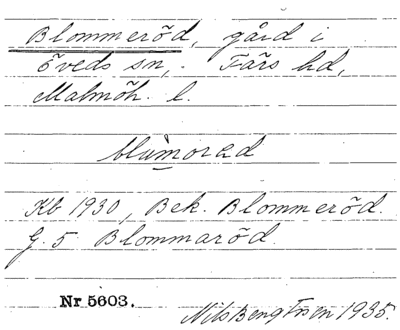 Blommeröd, gård i
Öveds sn, Färs hd,
Malmöh. l.
blumorad
Kb 1930, Bek. Blommeröd.
G. 5 Blommaröd.
Nr 5603.
Nils Bengtsson 1935.